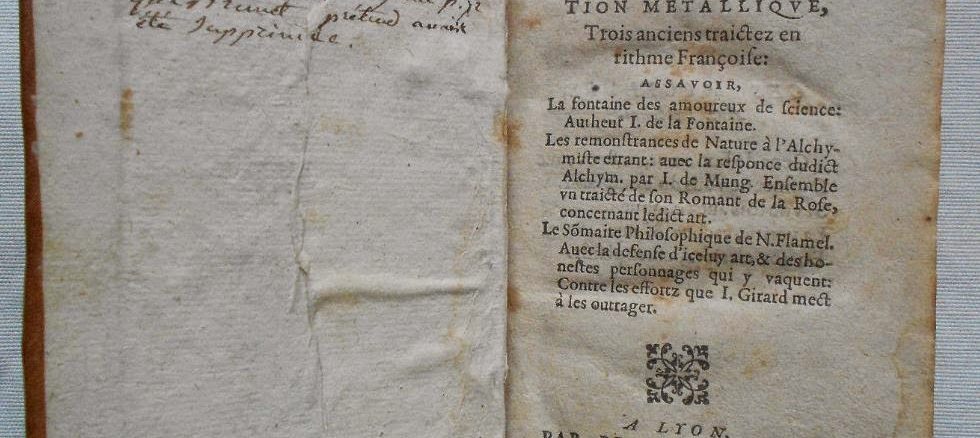 prétend avoir
été Imprimée.
TION METALLIQVE,
Trois anciens traictez en
rithme Françoiſe:
ASSAVOIR,
La fontaine des amoureux de ſcience:
Autheut I. de la Fontaine.
Les remonſtrances de Nature à l'Alchy-
miſte errant: auec la reſponce dudict
Alchym. par I. de Mung. Enſemble
vn traicté de ſon Romant de la Roſe,
concernant ledict art.
Le Sõmaire Philoſophique de N. Flamel.
Auec la defenſe d'iceluy art, & des ho-
neſtes perſonnages qui y vaquent:
Contre les effortz que I. Girard mect
à les outrager.
A LYON,
PAR